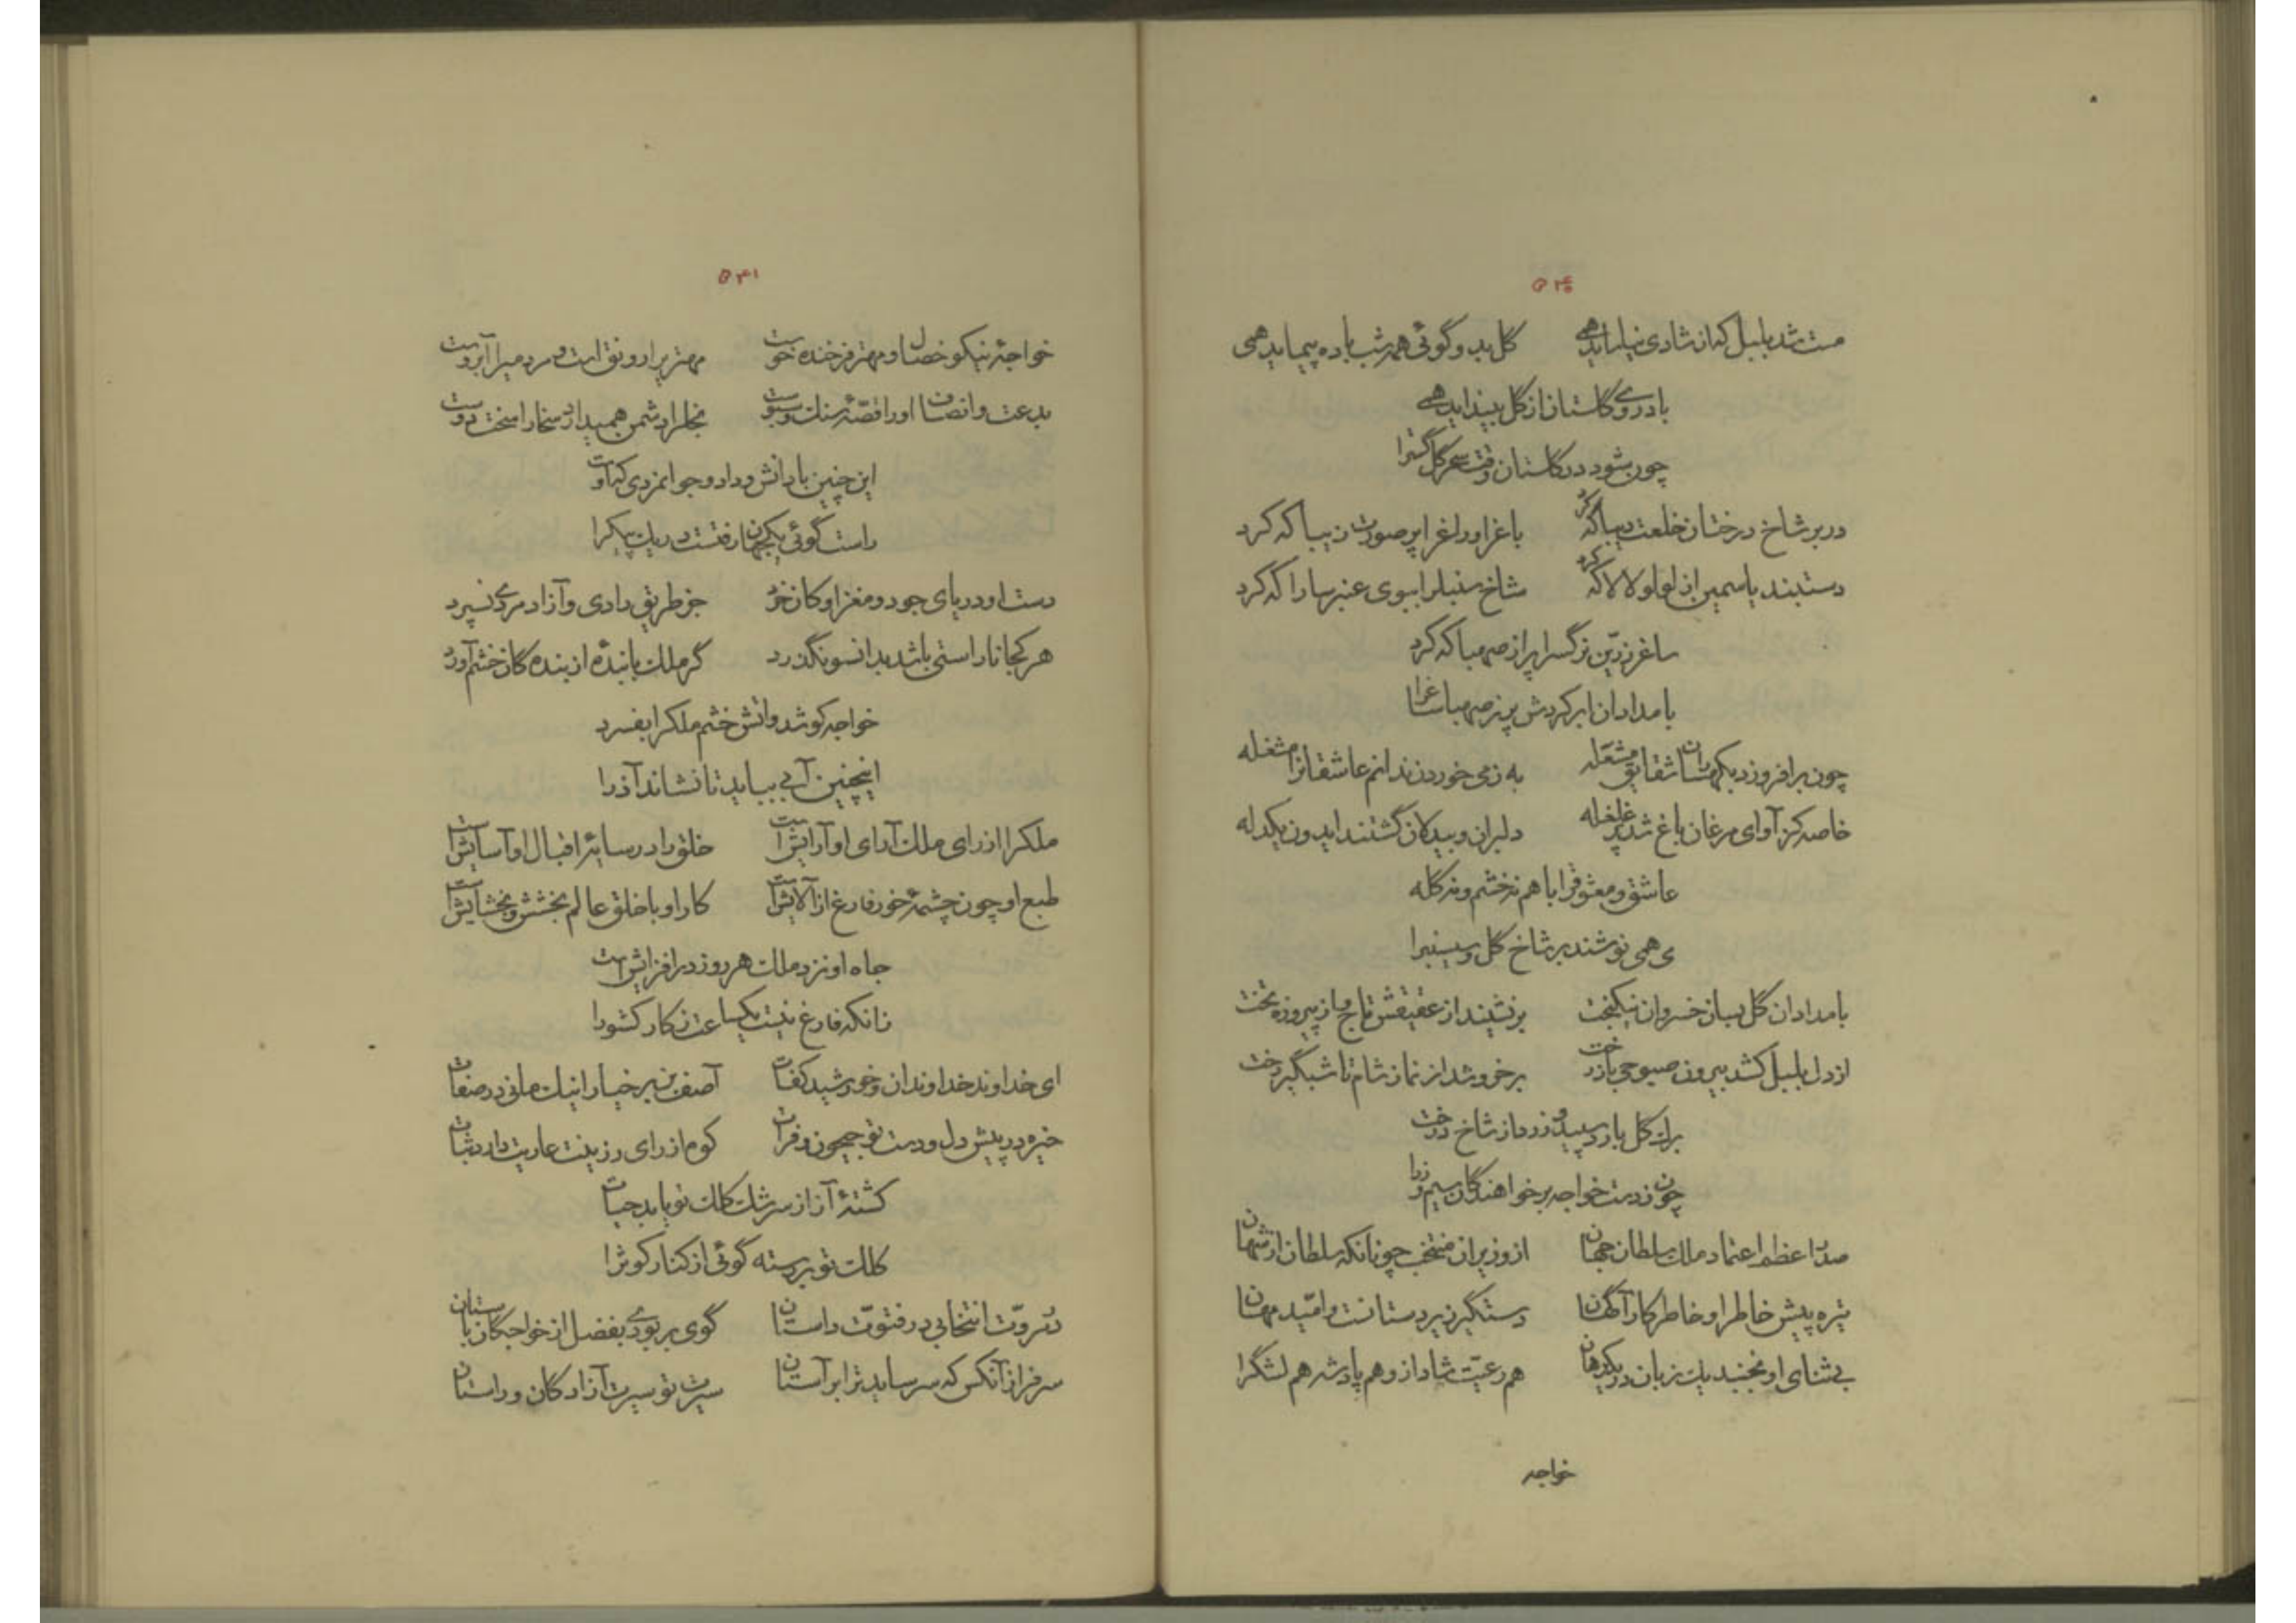 ۵۴۰
مست شد بلبل که از شادی نیاساید همی گل بدو گوئی همه شب باده پیماید همی
باد روی گلستان از گل بینداید همی
چون شود در گلستان وقت سحر گل گسترا
در بر شاخ درختان خلعت دیبا که کرد باغرا و راغرا پر صورت زیبا که کرد
دستبند یاسمین از لولو لالا که کرد شاخ سنبلرا ببوی عنبر سارا که کرد
ساغر زرّین نرگسرا پر از صهبا که کرد
بامدادان ابر کردش پر ز صهبا ساغرا
چون برافروزد بکهساران شقایق مشعله به ز می خوردن ندانم عاشقانرا مشغله
خاصه کز آوای مرغان باغ شد پر غلغله دلبران و بیدلان گشتند ایدون یکدله
عاشق و معشوقرا باهم نه خشم و نه گله
می همی نوشند بر شاخ گل و سیسنبرا
بامدادان گل بسان خسروان نیکبخت برنشیند از عقیقش تاج و از پیروزه تخت
از دل بلبل کشد بیرون صبوحی باز رخت برخروشد از نماز شام تا شبگیر سخت
برگ گل بارد سپید و زرد از شاخ درخت
چون ز دست خواجه بر خواهندگان سیم و زرا
صدر اعظم اعتماد ملک سلطان جهان از وزیران منتخب چونانکه سلطان از شهان
تیره پیش خاطر او خاطر کارآگهان دستگیر زیردستانست و امّید مهان
بی ثنای او نجنبد یک زبان در یک دهان هم رعیّت شاد ازو هم پادشه هم لشگرا
خواجه
۵۴۱
خواجهٔ نیکو خصال و مهتر فرخنده خوست مهتریرا رونق است و مردمیرا آبروست
بدعت و انصاف او را قصّهٔ سنگ و سبوست بخلرا دشمن همیدارد سخا را سخت دوست
این چنین با دانش و داد و جوانمردی که اوست
راست گوئی یکجهان رفتست در یک پیکرا
دست او دریای جود و مغز او کان خرد جز طریق رادی و آزادمردی نسپرد
هر کجا ناراستی باشد بدانسو نگذرد گر ملک با بندهٔ از بندگان خشم آورد
خواجه کوشد و آتش خشم ملکرا بفسرد
اینچنین آبی بباید تا نشاند آذرا
ملکرا از رای ملک آرای او آرایش است خلقرا در سایهٔ اقبال او آسایش است
طبع او چون چشمهٔ خور فارغ از آلایش است کار او با خلق عالم بخشش و بخشایش است
جاه او نزد ملک هر روز در افزایش است
زانکه فارغ نیست یکساعت ز کار کشورا
ای خداوند خداوندان و خورشید کفات آصف بن برخیا را نیک مانی در صفات
خیره در پیش دل و دست تو جیحون و فرات کوه از رای رزینت عاریت دارد ثبات
کشتهٔ آز از سرشک کلک تو یابد حیات
کلک تو بررسته گوئی از کنار کوثرا
ثروّت انتخابی در فتوّت داستان گوی بربودی بفضل از خواجگان باستان
سرفراز آنکس که سر ساید ترا بر آستان سیرت تو سیرت آزادگان و راستان